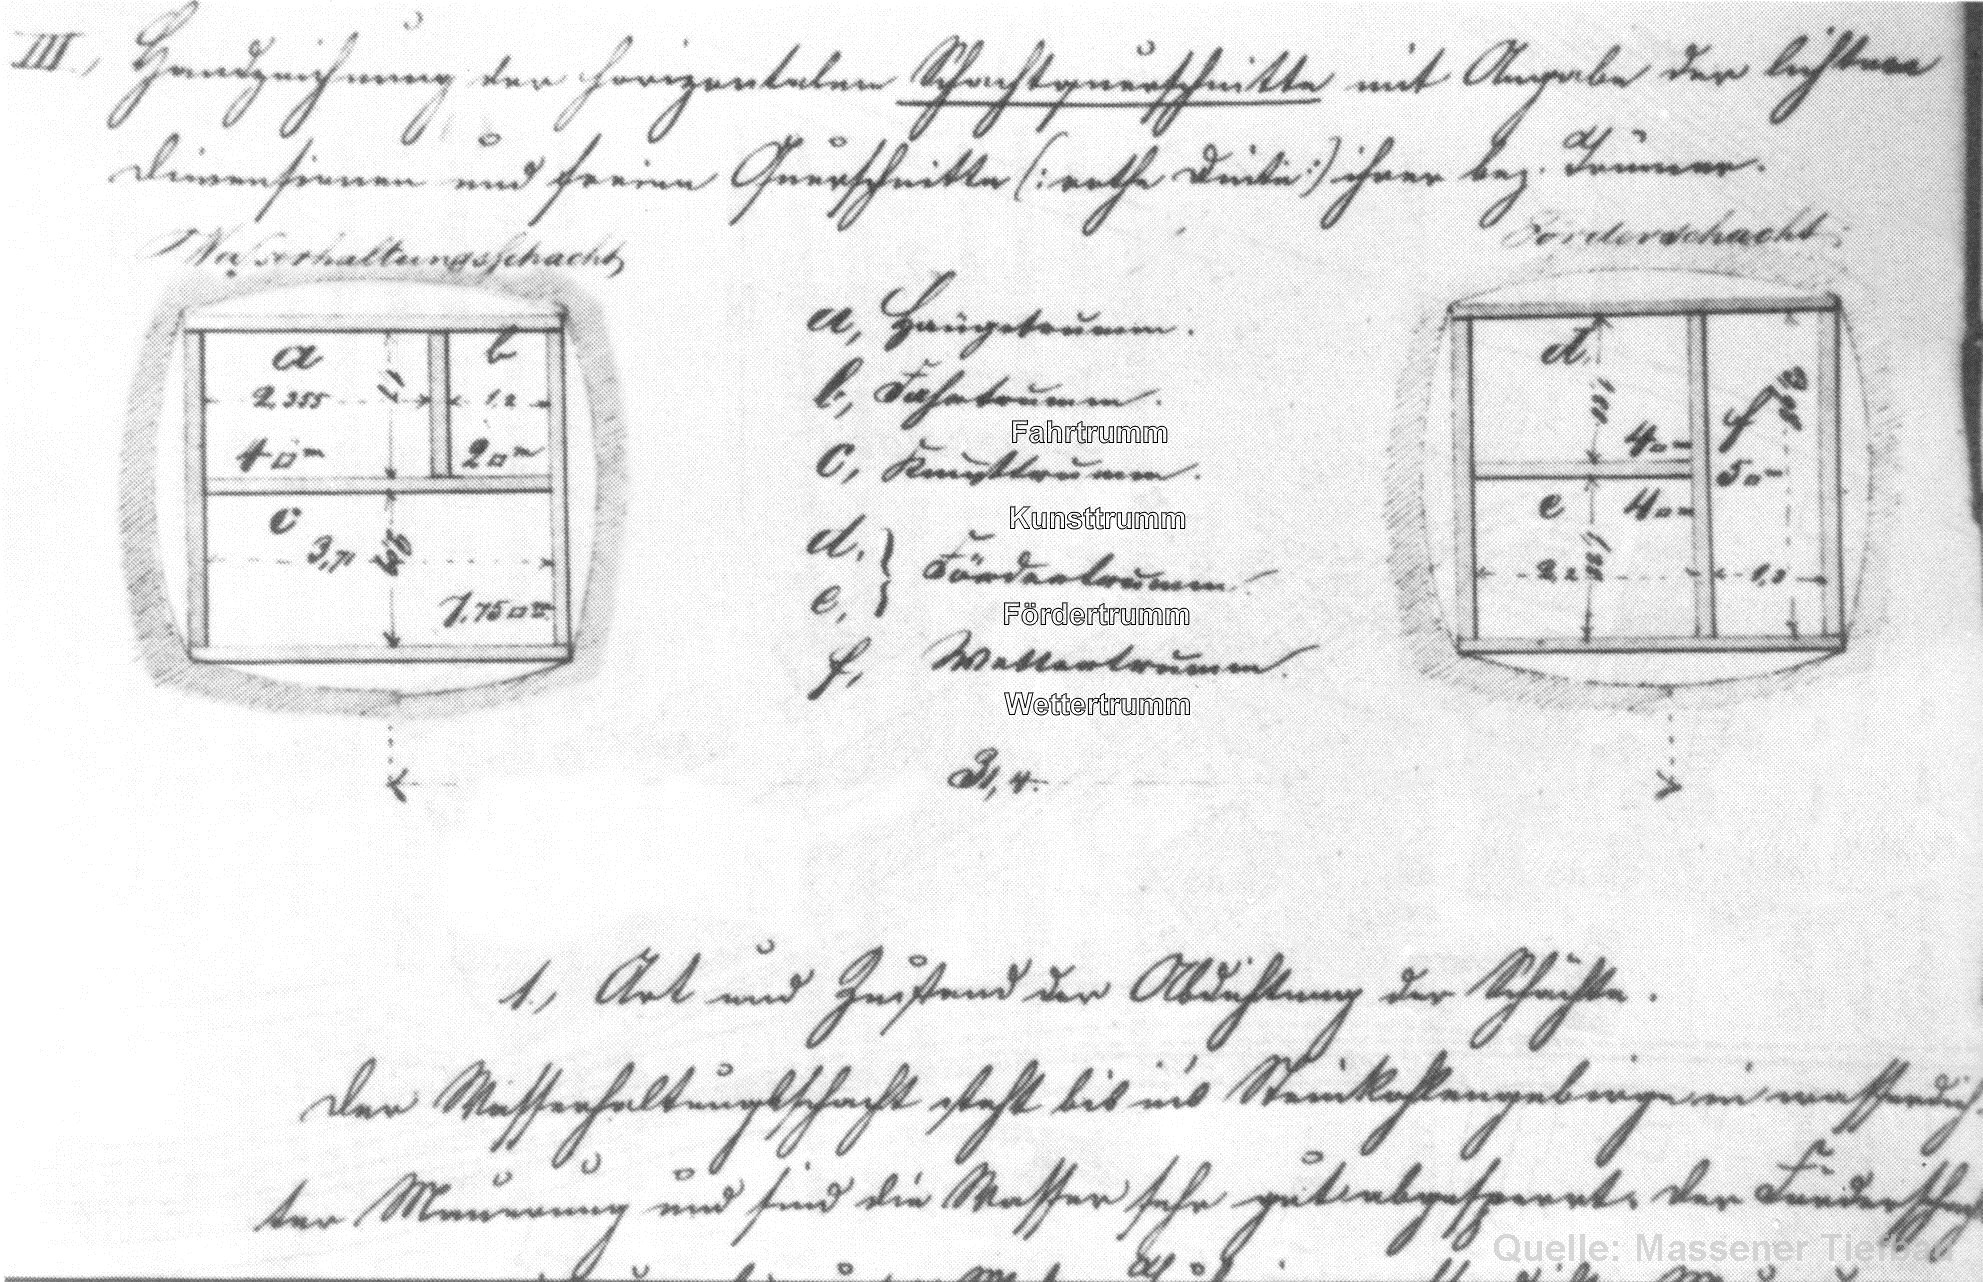 III., Handzeichnung der horizontalen Schachtquerschnitte mit Angabe der lichten
Dimensionen und freien Querschnitte (: rothe Dinte :) ihrer bez. Trümmer.
Wasserhaltungsschacht
Förderschacht
a
2,355
4 □ m
b
1,2
2 □ m
c
3,71
7,75 □ m
a, Hängetrumm.
b, Fahrtrumm.
Fahrtrumm
c, Kunsttrumm.
Kunsttrumm
d, } Fördertrumm.
e, }
Fördertrumm
f, Wettertrumm.
Wettertrumm
d
4 □ m
e
4 □ m
f
5 □ m
31,4.
1., Art und Zustand der Abdichtung der Schächte.
Der Wasserhaltungsschacht steht bis ins Steinkohlengebirge in wasserdich-
ter Mauerung und sind die Wasser sehr gut abgesperrt. Der Förderscha
Quelle: Massener Tiefbau